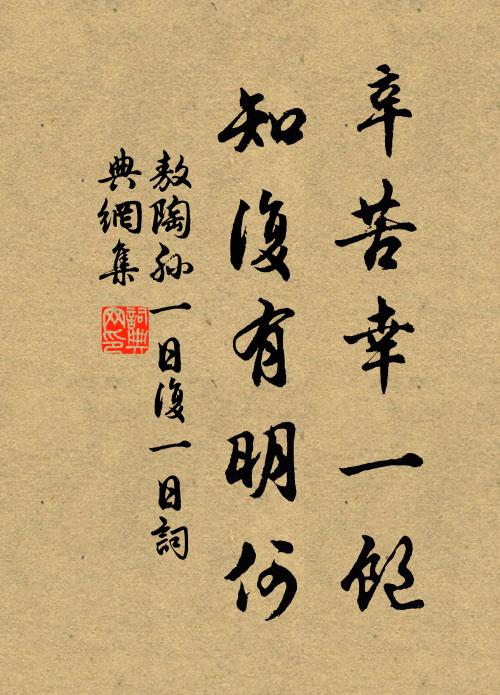 辛苦幸一飽
知復有明何
敖陶孫一日復一日詞
典網集
詞典
网印